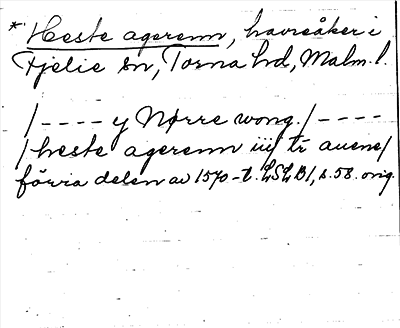 * Heste agerenn, havreåker i
Fjelie sn, Torna hd, Malm. l.
/ - - - - y Nørre wong. / - - - -
/ heste agerenn iiij tr auene /
förra delen av 1570-t. LSLB1, s. 58. orig.